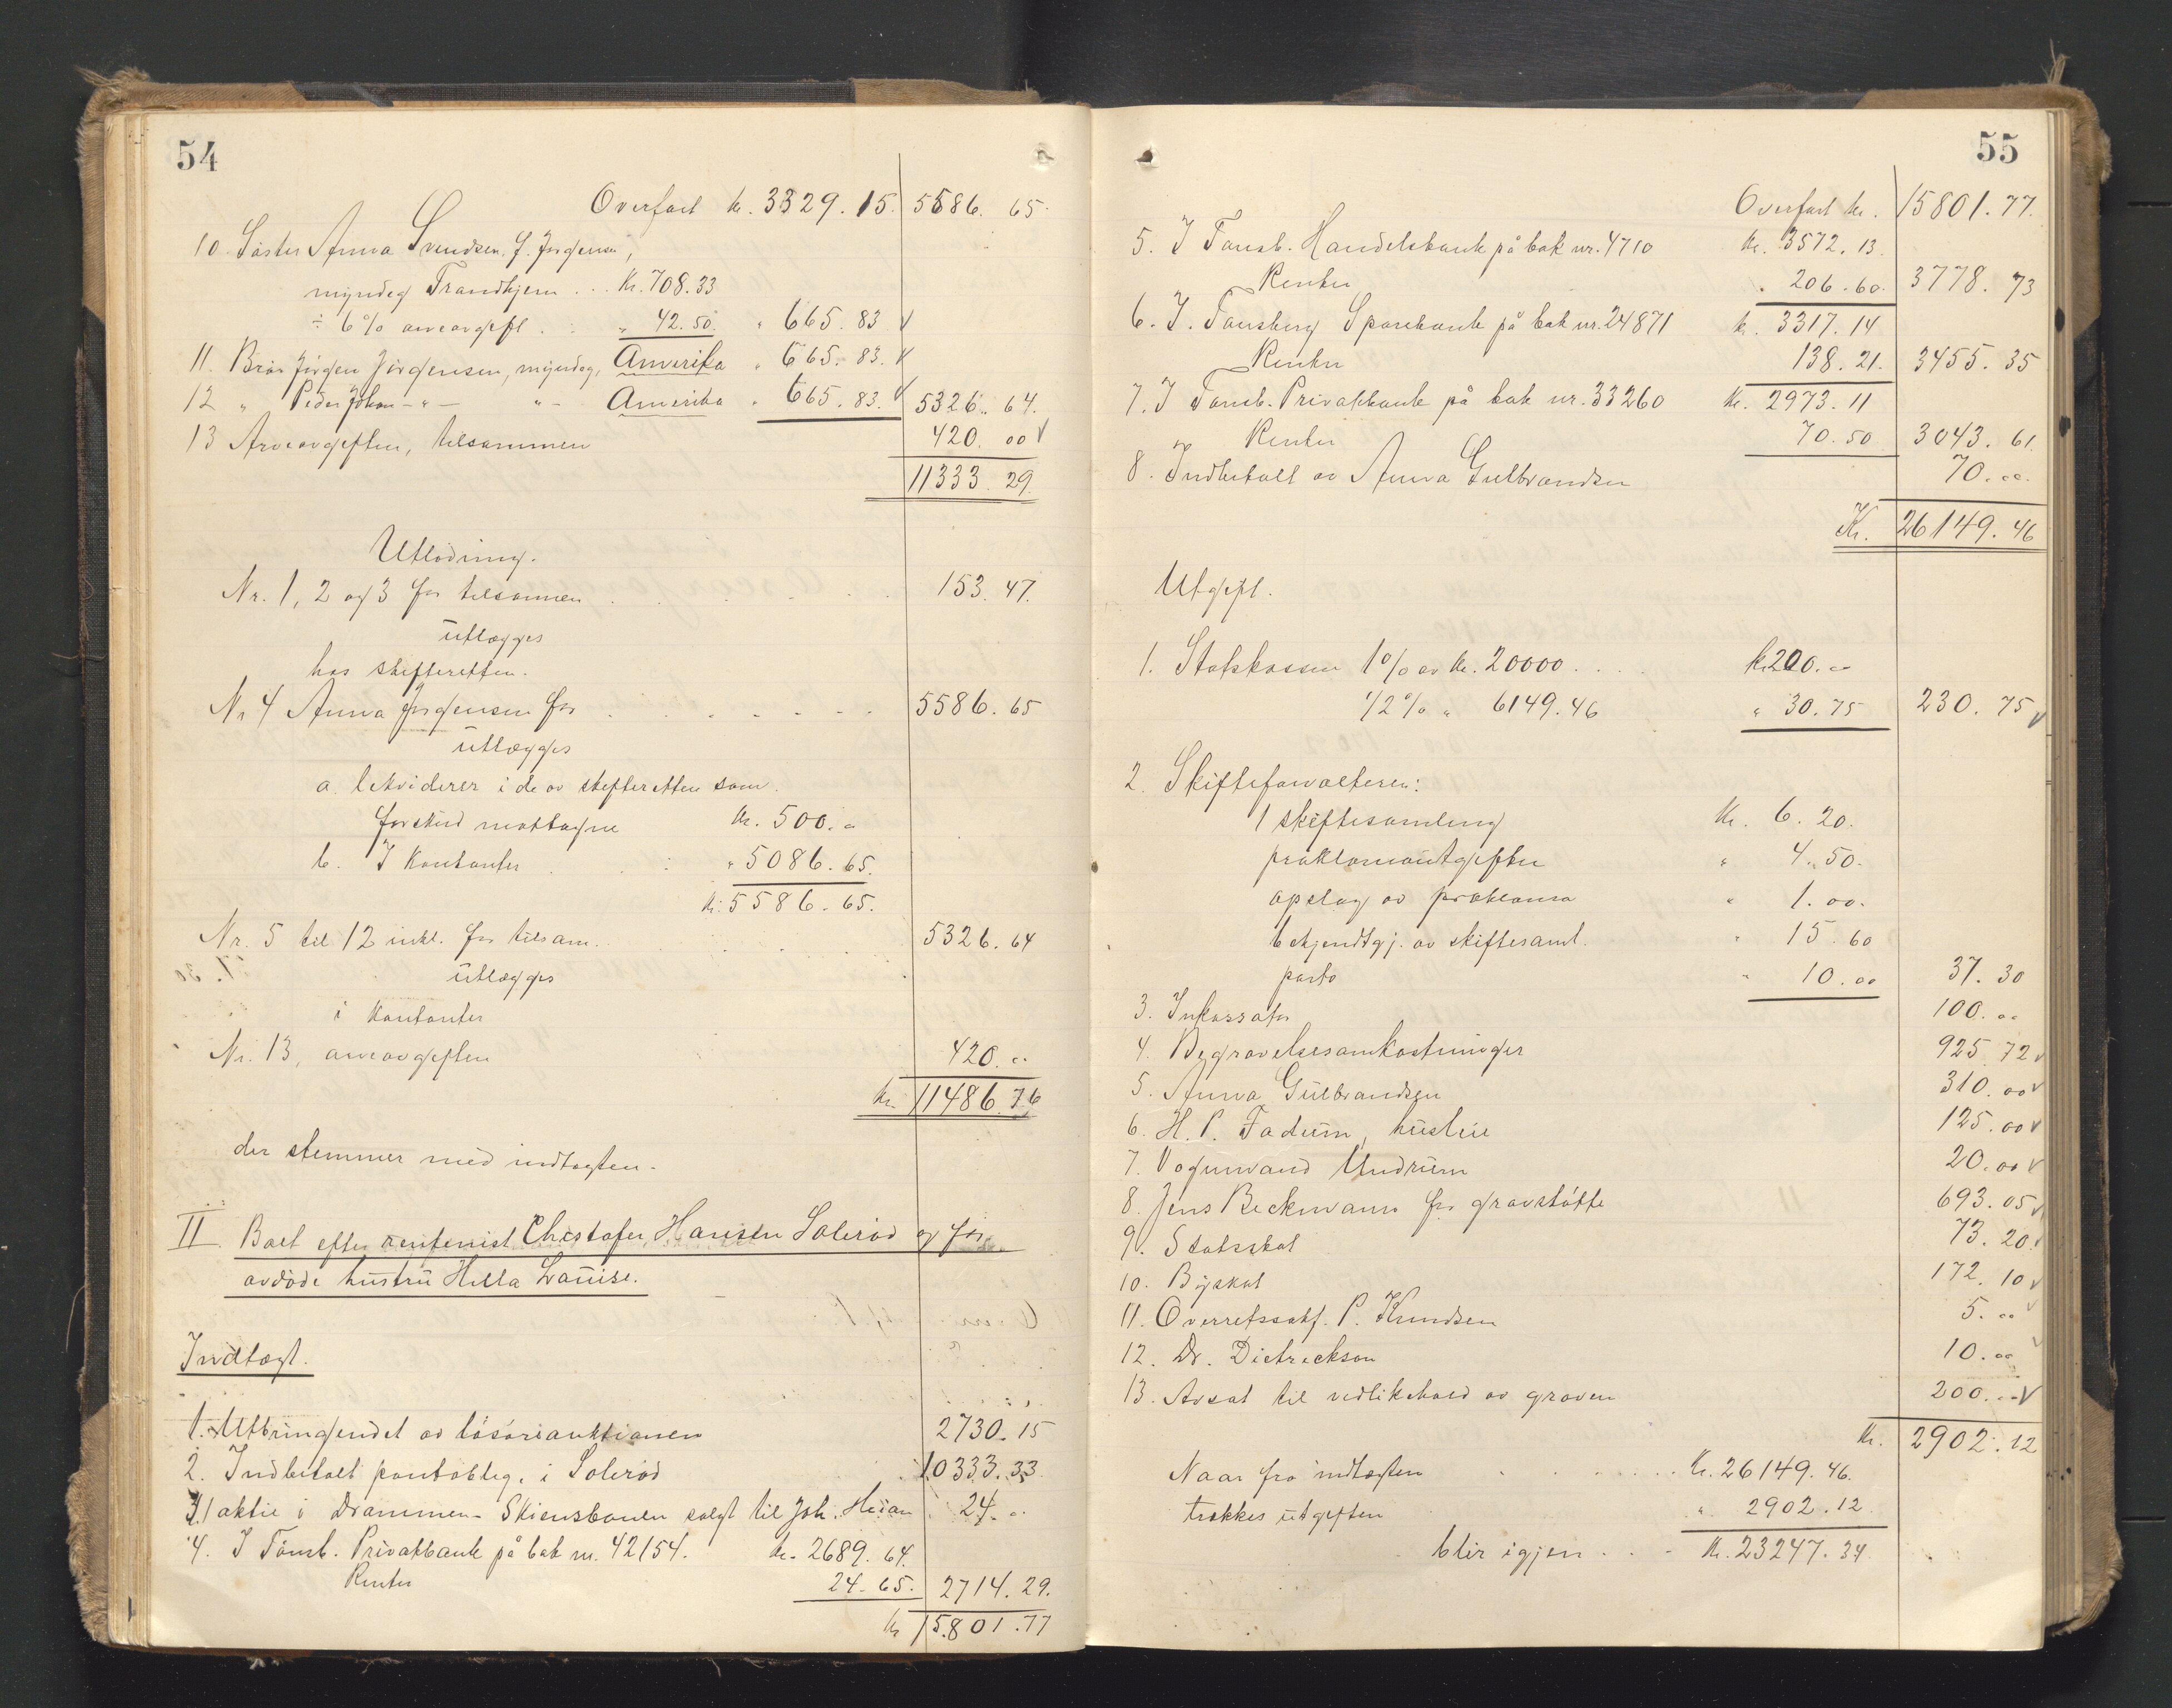 54
Overført kr. 3329.15. 5586.65.
10. Söster Anna Svendsen f. Jørgensen,
myndig Trondhjem ... Kr. 708.33
÷ 6% arveavgift . „ 42.50. „ 665.83 V
11. Bror Jørgen Jörgensen, myndig, Amerika „ 665.83. V
12 „ Peder Johan -„- „- Amerika „ 665.83. V 5326.64.
13 Arveavgiften, tilsammen 420.00 V
11333.29
Utlodning.
Nr. 1, 2 og 3 for tilsammen . . . . . 153.47.
utlægges
hos skifteretten.
Nr 4 Anna Jørgensen for . . . - - - - 5586.65
utlægges
a. likviderer i de av skifteretten som
forskud mottagne Kr. 500.-
b. I kontanter . . „ 5086.65.
Kr. 5586.65.
Nr. 5 til 12 inkl. for tilsam. . . . 5326.64
utlægges
i kontanter
Nr. 13, arveavgiften 420.-
Kr. 11486.76
der stemmer med indtægten.
II Boet efter rentenist Christofer Hansen Solerød og før
avdöde hustru Hella Louise.
Indtægt.
1. Utbringendet av lösöreauktionen 2730.15
2. Indbetalt pantoblig. i Solerød 10333.33
3. 1 aktie i Drammen-Skiensbanen solgt til Joh. 24.-
4. I Tönsb. Privatbank på bok nr. 42154. Kr. 2689.64.
Renter 24.65. 2714.29.
Kr 15801.77
55
Overført kr. 15801.77.
5. I Tønsb. Handelsbank på bok nr. 4710 Kr. 3572.13.
Renter „ 206.60. 3778.73
6. I. Tønsberg Sparebank på bok nr. 24871 kr. 3317.14
Renter 138.21. 3455.35
7. I Tønsb. Privatbank på bok nr. 33260 Kr. 2973.11
Renter 70.50 3043.61
8. Indbetalt av Anna Gulbrandsen 70.00.
Kr. 26149.46
Utgift.
1. Statskassen 1% av kr. 20000 . . . . kr. 200.-
1/2% „ 6149.46 „ 30.75 230.75 V
2. Skifteforvalteren:
1 skiftesamling Kr. 6.20.
proklamautgifter „ 4.50.
opslag av proklama „ 1.00.
bekjendtgj. av skiftesaml. „ 15.60
porto „ 10.00 37.30
3. Inkassator 100.00
4. Begravelsesomkostninger 925.72 V
5. Anna Gulbrandsen 310.00 V
6. H. P. Fadum, husleie 125.00 V
7. Vognmand Undrum 20.00 V
8. Jens Beckmann for gravstötte 693.05 V
9. Statsskat 73.20 V
10. Byskat 172.10 V
11. Overretssakf. P. Knudsen 5.00 V
12. Dr. Dietrickson 10.00 V
13. Avsat til vedlikehold av graven 200.00 V
Kr. 2902.12
Naar fra indtægten . . . . . Kr. 26149.46.
trækkes utgiften „ 2902.12
blir igjen . . - Kr. 23247.34